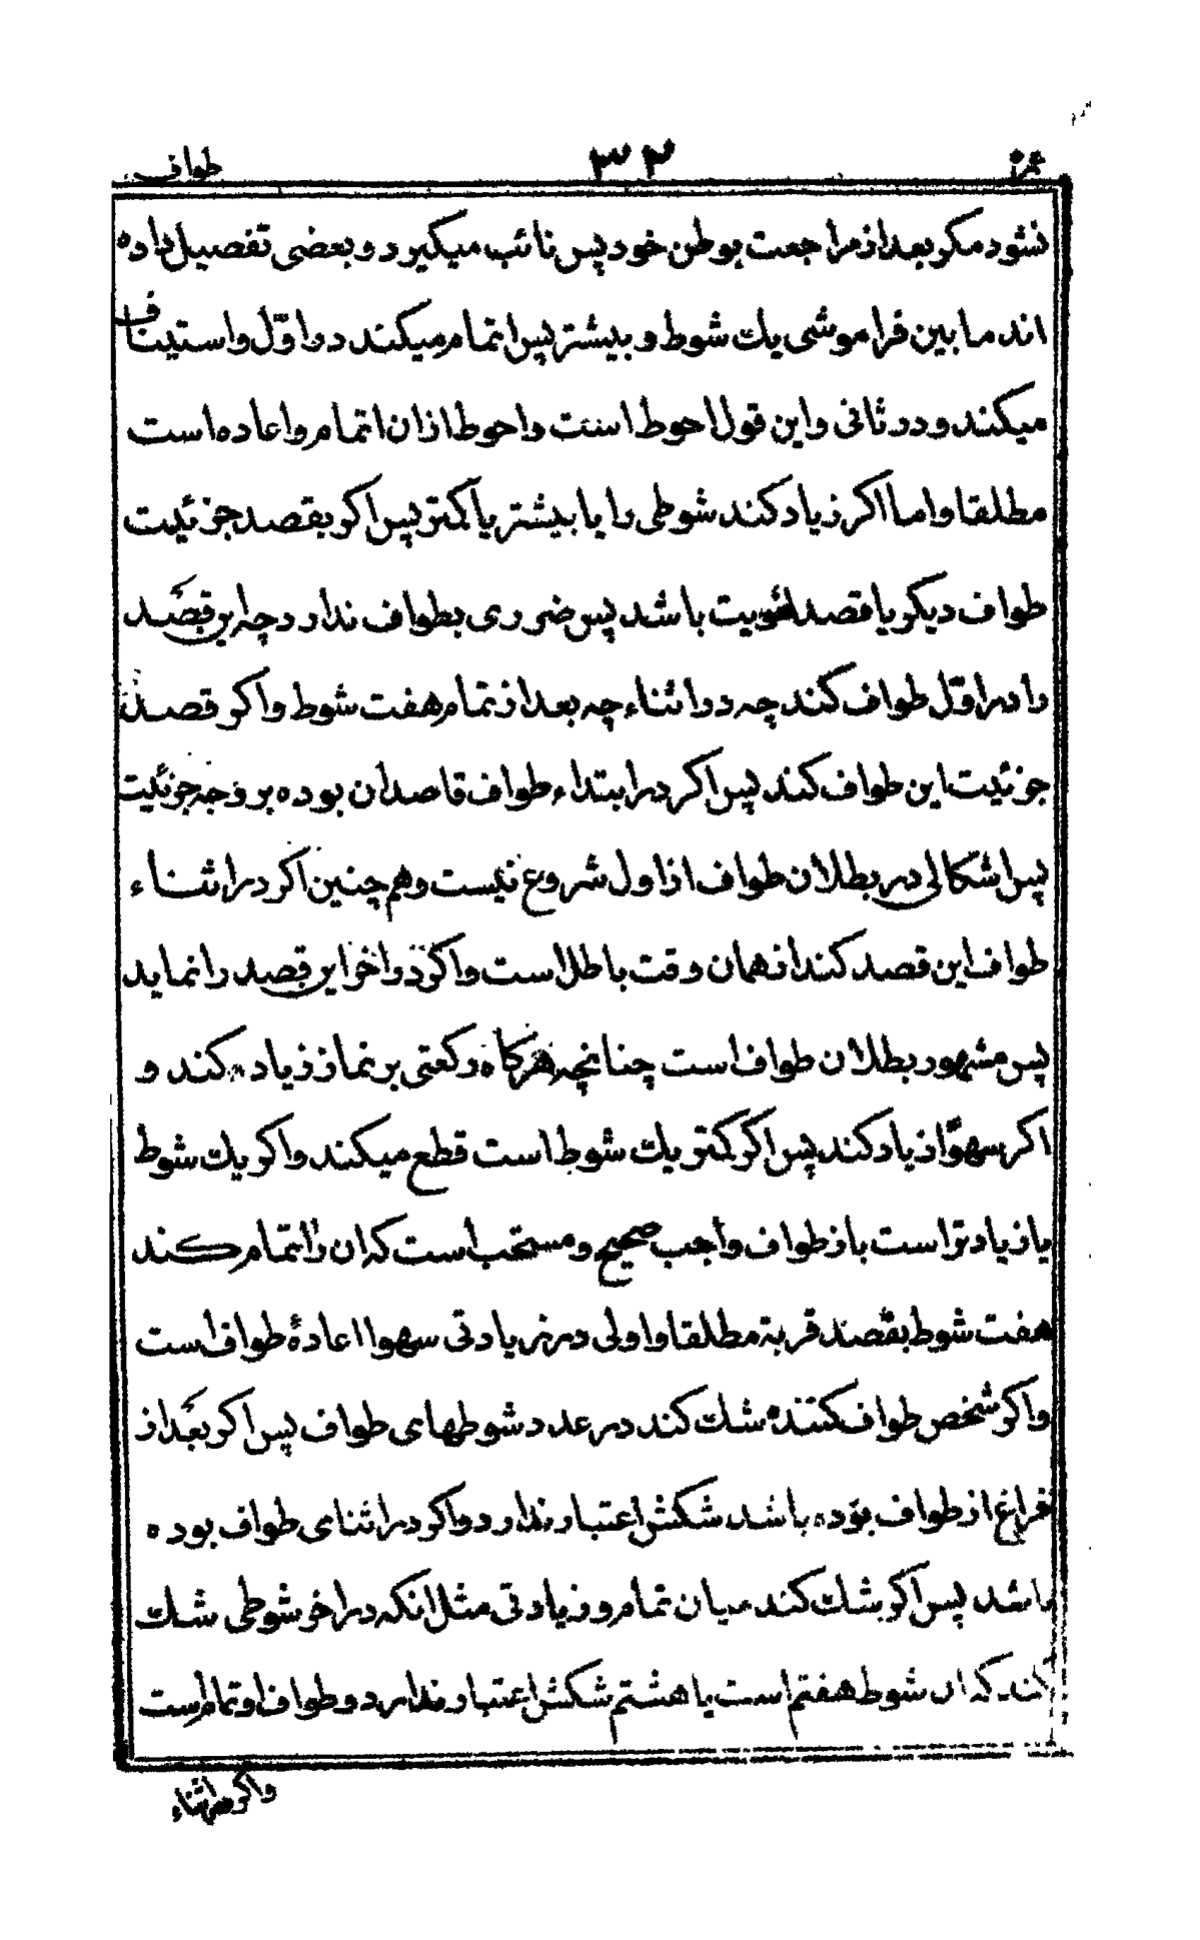 عمره ۳۲ طواف
نشود مکر بعد از مراجعت بوطن خود پس نائب میکیرد و بعضی تفصیل داده
اند ما بین فراموشی یك شوط و بیشتر پس اتمام میکند در اوّل و استیناف
میکند و در ثانی و این قول احوط است و احوط ازان اتمام و اعاده است
مطلقا و اما اکر زیاد کند شوطی را یا بیشتر یا کمتر پس اکر بقصد جزئیت
طواف دیکر یا قصد لغویت باشد پس ضرری بطواف ندارد چه این قصد
را در اوّل طواف کند چه در اثناء چه بعد از تمام هفت شوط و اکر قصد
جزئیت این طواف کند پس اکر در ابتداء طواف قاصدان بوده بر وجه جزئیت
پس اشکالی در بطلان طواف از اول شروع نیست و هم چنین اکر در اثناء
طواف این قصد کند از همان وقت باطل است و اکر در اخر این قصد را نماید
پس مشهور بطلان طواف است چنانچه هرکاه رکعتی بر نماز زیاد کند و
اکر سهوًا زیاد کند پس اکر کمتر یك شوط است قطع میکند و اکر یك شوط
یا زیادتر است باز طواف واجب صحیح و مستحب است که ان را اتمام کند
هفت شوط بقصد قربة مطلقا و اولی در زیادتی سهوا اعادهٔ طواف است
و اکر شخص طواف کننده شك کند در عدد شوطهای طواف پس اکر بعد از
فراغ از طواف بوده باشد شکش اعتبار ندارد و اکر در اثنای طواف بوده
باشد پس اکر شك کند میان تمام و زیادتی مثل انکه در اخر شوطی شك
کند که ان شوط هفتم است یا هشتم شکش اعتبار ندارد و طواف او تمام است
و اکر در اثناء